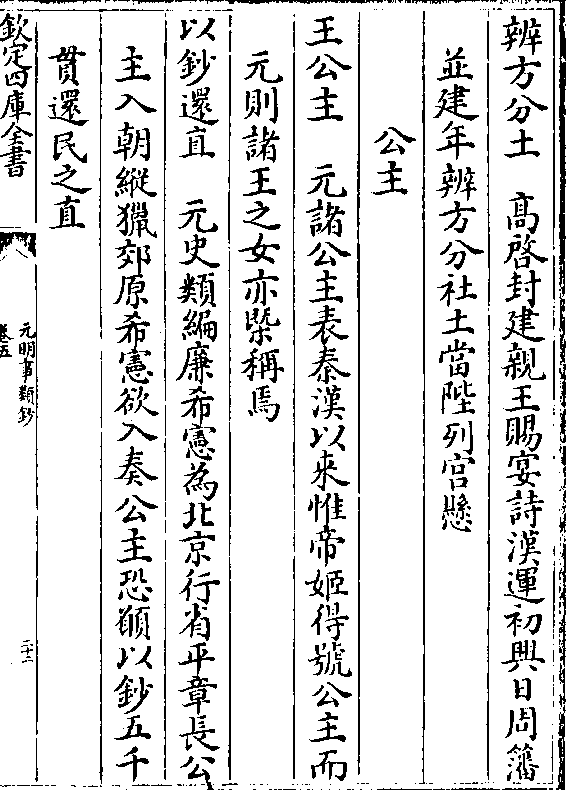 辨方分土　高啓封建親王賜宴詩漢運初興日周籓
並建年辨方分社土當陛列宫懸
公主
王公主　元諸公主表秦漢以來惟帝姬得號公主而
元則諸王之女亦槩稱焉
以鈔還直　元史類編廉希憲為北京行省平章長公
主入朝縱獵郊原希憲欲入奏公主恐願以鈔五千
貫還民之直
欽定四庫全書
元明事類鈔
卷五
二十二